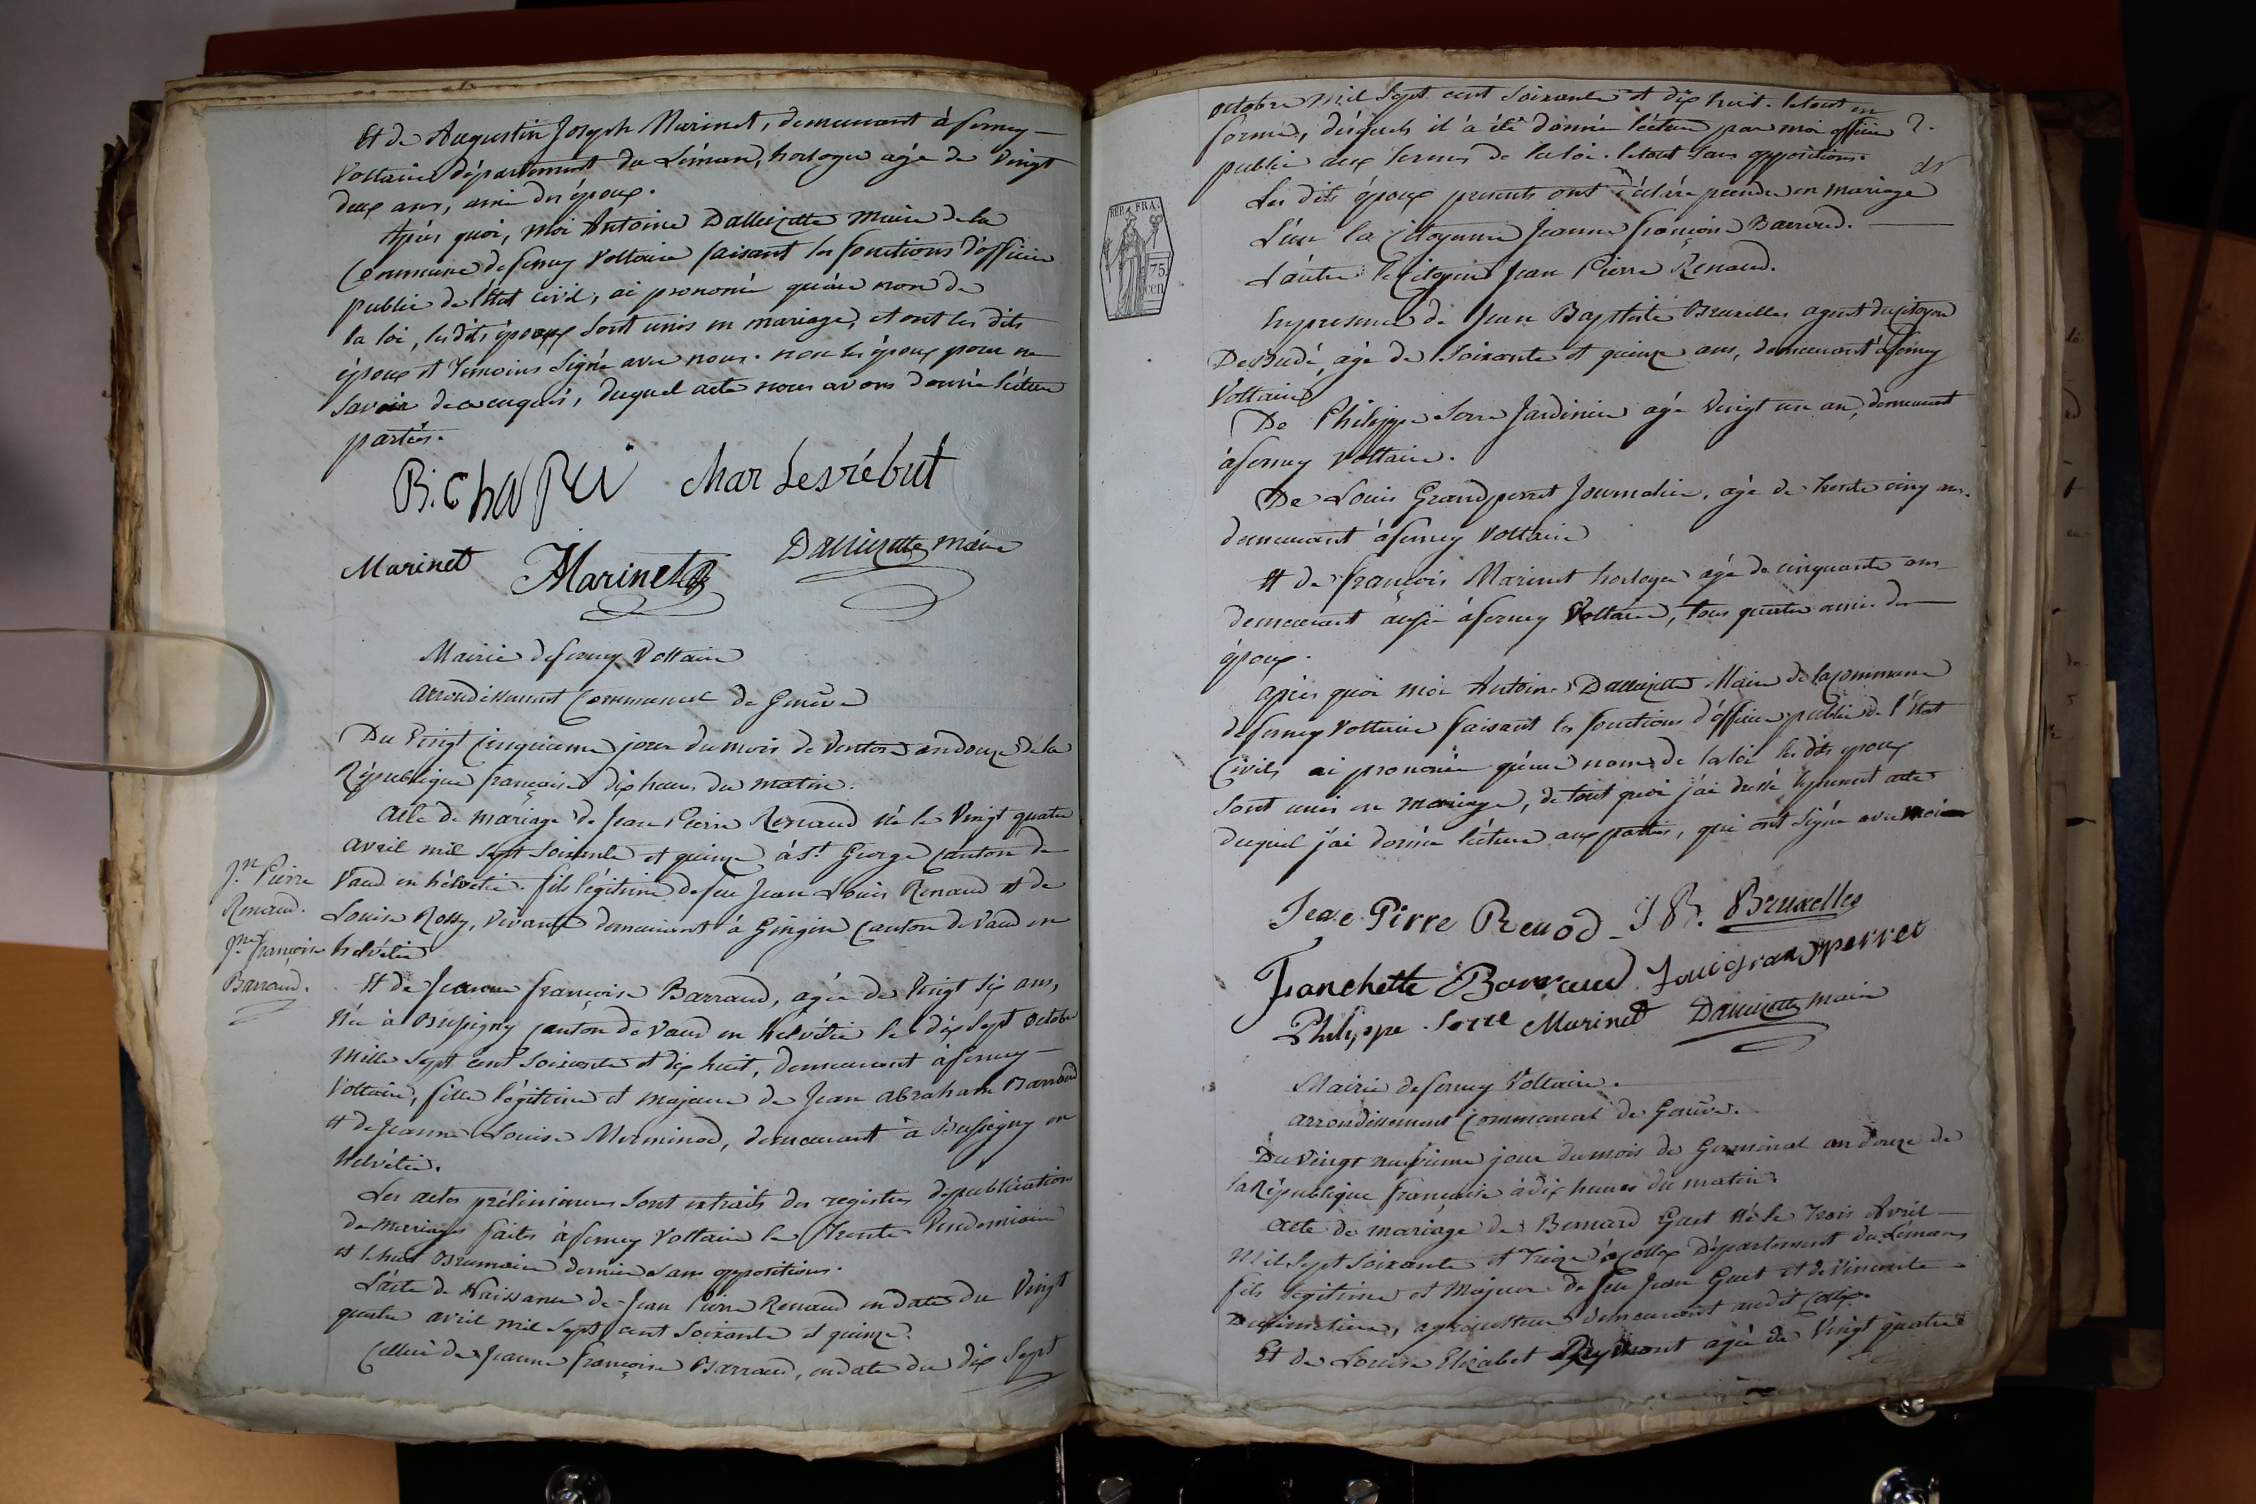 Et de Augustin Joseph Marinet, demeurant à ferney
Voltaire département du Léman, horloger agé de Vingt
deux ans, ami des époux.
Après quoi, moi Antoine Dallizette Maire de la
Commune de ferney Voltaire faisant les fonctions d'officier
public de l'état civil, ai prononcé qu'au nom de
la loi, les dits époux sont unis en mariage, et ont les dits
époux et temoins signé avec nous. non les époux pour ne
savoir de ce enquis, duquel acte nous avons donné lécture
partiés.
Char Lesrébut
Marinet Marinet Dallizette maire
Mairie de ferney Voltaire
arrondissement Communal de Genève
Du Vingt Cinquieme jour du mois de Ventose an douze de la
République française dix heures du matin.
Acte de mariage de Jean Pierre Renaud né le Vingt quatre
avril mil sept soixante et quinze à St. George Canton de
Vaud en hélvétie. fils légitime de feu Jean Louis Renaud et de
Louise Rossy, vivante demeurant à Gingin Canton de Vaud en
helvétie
Jn. Pierre
Renaud.
Jne. françoise
Barraud.
Et de Jeanne françoise Barraud, agée de Vingt six ans,
Née à Bussigny Canton de Vaud en helvétie le dix sept Octobre
mille sept cent soixante et dix huit, demeurant à ferney
Voltaire, fille légitime et majeure de Jean Abraham Barraud
et de Jeanne Louise Merminod, demeurant à Bussigny en
helvétie.
Les actes préliminaires sont extraits des registres de publications
de Mariages faites à ferney Voltaire le trente Vendemiaire
et le huit Brumaire dernier sans oppositions.
L'acte de Naissance de Jean Pierre Renaud en date du Vingt
quatre avril mil sept cent soixante et quinze.
Celui de Jeanne françoise Barraud, en date du dix sept
octobre mil sept cent soixante et dix huit. le tout en
forme, désquels il a été donné lécture par moi officier
public aux termes de la loi. le tout sans oppositions.
Les dits époux présents ont déclaré prendre en mariage
L'un la Citoyenne Jeanne françoise Barraud.
L'autre le Citoyen Jean Pierre Renaud.
REP. FRA.
75
cen
En presence de Jean Baptiste Bruxelles agent du Citoyen
Desbudé, agé de soixante et quinze ans, demeurant à ferney
Voltaire
De Philippe Serre Jardinier agé Vingt un an, demeurant
à ferney Voltaire.
De Louis Grandperret Journalier, agé de trente cinq ans.
demeurant à ferney Voltaire
Et de françois Marinet horloger agé de cinquante ans
demeurant aussi à ferney Voltaire, tous quatre amis des
époux.
Après quoi moi Antoine Dallizette Maire de la Commune
de ferney Voltaire faisant les fonctions d'officier public de l'état
Civil, ai prononcé qu'au nom de la loi les dits époux
sont unis en mariage, de tout quoi j'ai dressé le présent acte
duquel j'ai donné lécture aux parties, qui ont signé avec moi
Jeae Pirre Renod J B. Bruxelles
Franchette Barraud Louis granperret
Philippe Serre Marinet Dallizette maire
Mairie de ferney Voltaire.
Arrondissement Communal de Genève.
Du Vingt neuvieme jour du mois de Germinal an douze de
la République française à dix heures du matin
Acte de mariage de Bernard Guet né le trois Avril
Mil sept soixante et treize à Collex Département du Léman
fils légitime et majeur de feu Jean Guet et de Vincente
Duimetiere, agriculteur demeurant audit Collex.
Et de Louise Elizabet agée de Vingt quatre